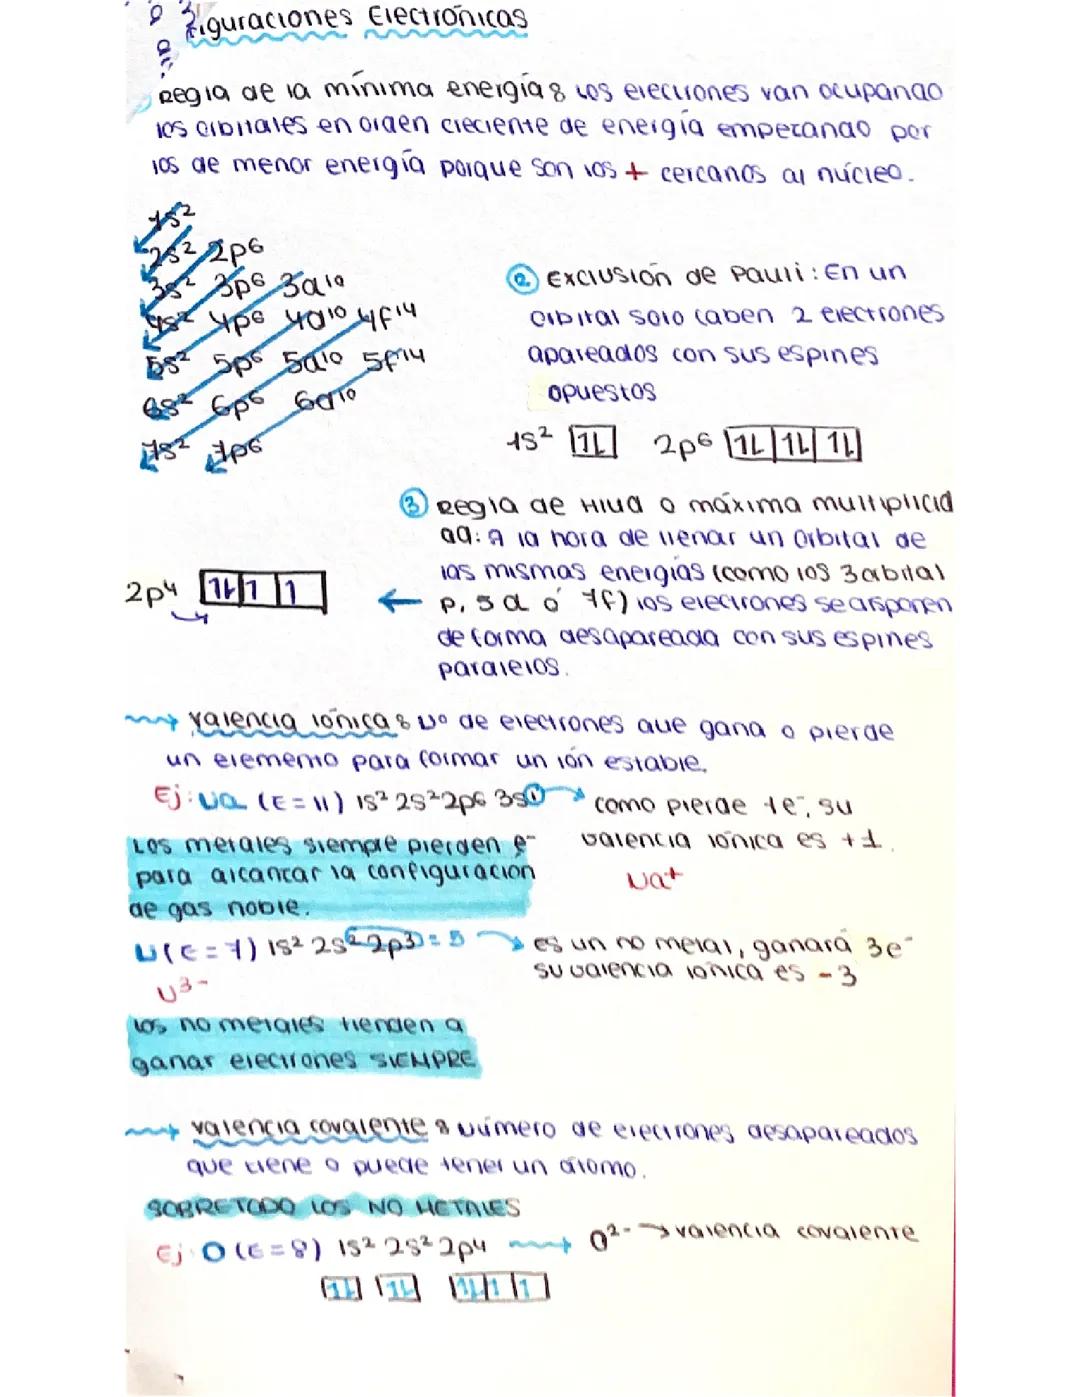 Figuraciones Electrónicas
Regla de la mínima energía: Los electrones van ocupando
los orbitales en orden creciente de energía empezando por
los de menor energía porque son los + cercanos al núcleo.
1s²
2s² 2p⁶
3s² 3p⁶ 3d¹⁰
4s² 4p⁶ 4d¹⁰ 4f¹⁴
5s² 5p⁶ 5d¹⁰ 5f¹⁴
6s² 6p⁶ 6d¹⁰
7s² 7p⁶
② Exclusión de Pauli: En un
orbital solo caben 2 electrones
apareados con sus espines
opuestos
1s² 1L 2p⁶ 1L 1L 1L
③ Regla de Hud o máxima multiplicid
ad: A la hora de llenar un orbital de
las mismas energías (como los 3 orbital
p, 5 d o 7f) los electrones se disponen
de forma desapareada con sus espines
paralelos.
2p⁴ 1L 1 1
valencia iónica: Nº de electrones que gana o pierde
un elemento para formar un ión estable.
Ej: Na (E=11) 1s² 2s² 2p⁶ 3s① → como pierde 1e⁻, su
valencia iónica es +1.
Na⁺
Los metales siempre pierden e⁻
para alcanzar la configuración
de gas noble.
N (E=7) 1s² 2s² 2p³ = 5 → es un no metal, ganará 3e⁻
su valencia iónica es -3
N³⁻
los no metales tienden a
ganar electrones SIEMPRE
valencia covalente: Número de electrones desapareados
que tiene o puede tener un átomo.
SOBRETODO LOS NO METALES
Ej: O (E=8) 1s² 2s² 2p⁴ → O²⁻ → valencia covalente
1L 1L 1L 1 1